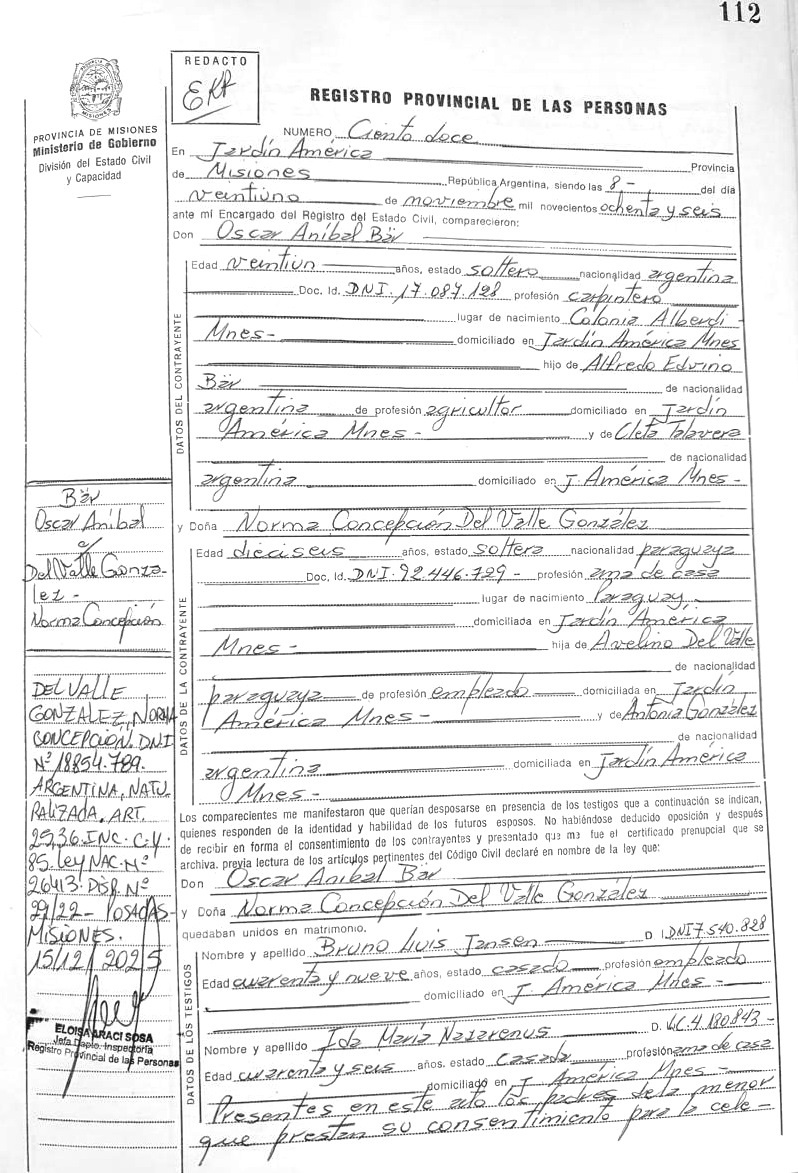 112
REDACTO
REGISTRO PROVINCIAL DE LAS PERSONAS
PROVINCIA DE MISIONES
Ministerio de Gobierno
División del Estado Civil
y Capacidad
NUMERO Ciento doce
En Jardín América Provincia
de Misiones República Argentina, siendo las 8 - del día
veintiuno de noviembre mil novecientos ochenta y seis
ante mí Encargado del Registro del Estado Civil, comparecieron:
Don Oscar Aníbal Bär
DATOS DEL CONTRAYENTE
Edad veintiun años, estado soltero nacionalidad argentina
Doc. Id. DNI. 17.087.128 profesión carpintero
lugar de nacimiento Colonia Alberdi -
Mnes - domiciliado en Jardín América Mnes
hijo de Alfredo Edvino
Bär de nacionalidad
argentina de profesión agricultor domiciliado en Jardín
América Mnes - y de Cleta Talavera
de nacionalidad
argentina domiciliado en J. América Mnes -
y Doña Norma Concepción Del Valle González
DATOS DE LA CONTRAYENTE
Edad dieciseis años, estado soltera nacionalidad paraguaya
Doc. Id. DNI. 92.446.729 - profesión ama de casa
lugar de nacimiento Paraguay
domiciliada en Jardín América
Mnes - hija de Avelino Del Valle
de nacionalidad
paraguaya de profesión empleado domiciliada en Jardín
América Mnes - y de Antonia González
de nacionalidad
argentina domiciliada en Jardín América
Mnes -
Los comparecientes me manifestaron que querían desposarse en presencia de los testigos que a continuación se indican,
quienes responden de la identidad y habilidad de los futuros esposos. No habiéndose deducido oposición y después
de recibir en forma el consentimiento de los contrayentes y presentado que me fue el certificado prenupcial que se
archiva. previa lectura de los artículos pertinentes del Código Civil declaré en nombre de la ley que:
Don Oscar Aníbal Bär
y Doña Norma Concepción Del Valle González
quedaban unidos en matrimonio.
DATOS DE LOS TESTIGOS
Nombre y apellido Bruno Luis Jansen D.I. DNI 7.540.828
Edad cuarenta y nueve años, estado casado profesión empleado
domiciliado en J. América Mnes -
Nombre y apellido Ida María Nazarenus D. LC. 4.180.843 -
Edad cuarenta y seis años, estado casada profesión ama de casa
domiciliado en J. América Mnes -
Presentes en este acto los padres de la menor
que prestan su consentimiento para la cele -
Bär
Oscar Aníbal
c/
Del Valle Gonza-
lez -
Norma Concepción
DEL VALLE
GONZALEZ, NORMA
CONCEPCIÓN. DNI
Nº 18854.789.
ARGENTINA, NATU
RALIZADA. ART.
25,36. INC. C. Y.
85. Ley NAC. Nº
26413. DISP. Nº
29/22 - POSADAS -
MISIONES.
15/12/2025
ELOISA ARACI SOSA
Jefa Dpto. Inspectoría
Registro Provincial de las Personas